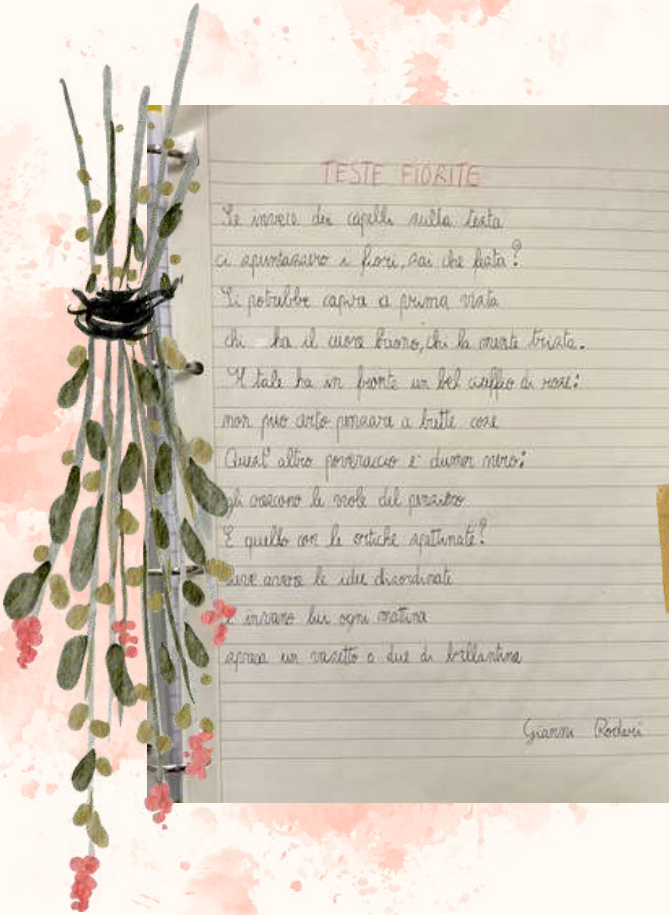 TESTE FIORITE
Se invece dei capelli sulla testa
ci spuntassero i fiori, sai che festa?
Si potrebbe capire a prima vista
chi ha il cuore buono, chi la mente trista.
Il tale ha in fronte un bel ciuffo di rose:
non può certo pensare a brutte cose
Quest'altro poveraccio è d'umor nero:
gli crescono le viole del pensiero.
E quello con le ortiche spettinate?
Deve avere le idee disordinate
E invano lui ogni mattina
spreca un vasetto o due di brillantina
Gianni Rodari